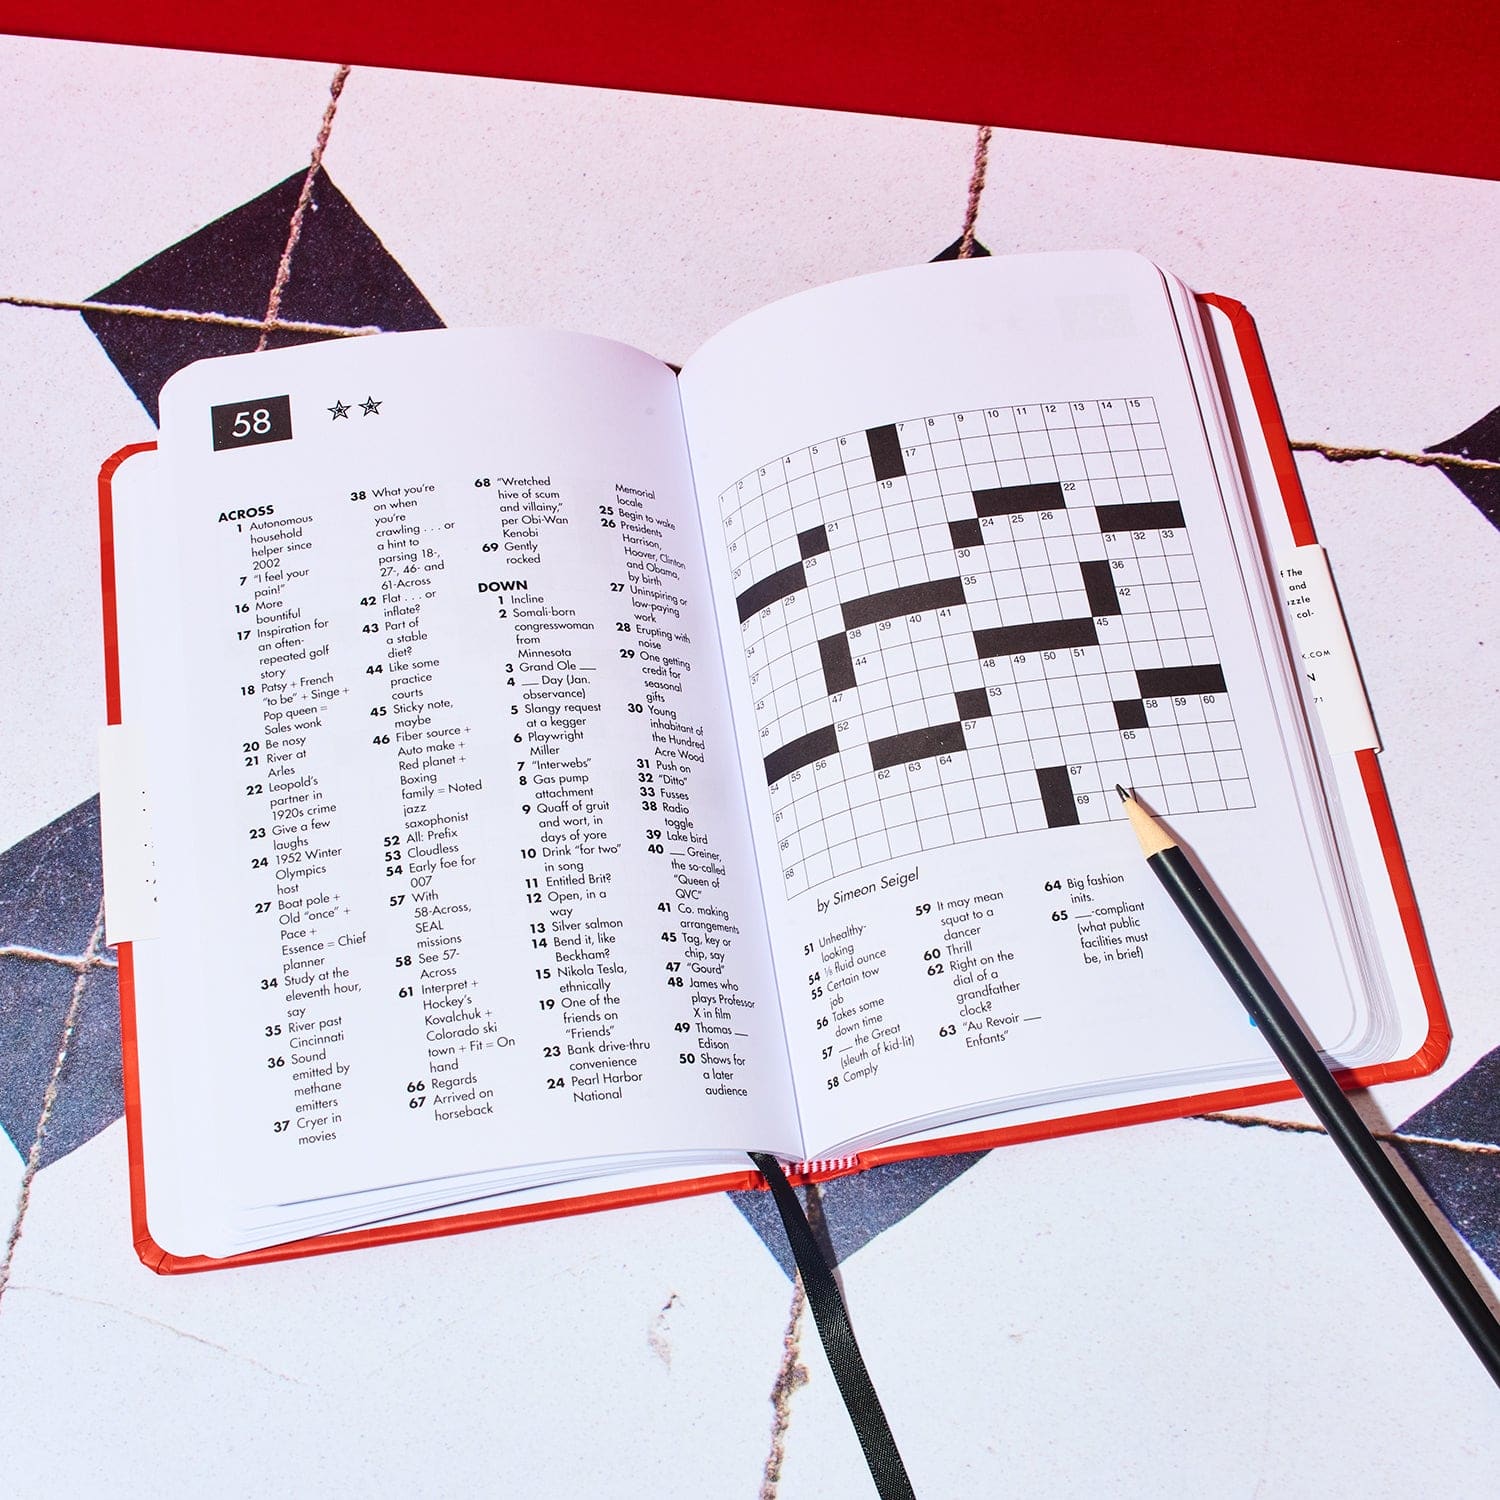 58
ACROSS
1 Autonomous
household
helper since
2002
7 "I feel your
pain!"
16 More
bountiful
17 Inspiration for
an often-
repeated golf
story
18 Patsy + French
"to be" + Singe +
Pop queen =
Sales wonk
20 Be nosy
21 River at
Arles
22 Leopold's
partner in
1920s crime
23 Give a few
laughs
24 1952 Winter
Olympics
host
27 Boat pole +
Old "once" +
Pace +
Essence = Chief
planner
34 Study at the
eleventh hour,
say
35 River past
Cincinnati
36 Sound
emitted by
methane
emitters
37 Cryer in
movies
38 What you're
on when
you're
crawling . . . or
a hint to
parsing 18-,
27-, 46- and
61-Across
42 Flat . . . or
inflate?
43 Part of
a stable
diet?
44 Like some
practice
courts
45 Sticky note,
maybe
46 Fiber source +
Auto make +
Red planet +
Boxing
family = Noted
jazz
saxophonist
52 All: Prefix
53 Cloudless
54 Early foe for
007
57 With
58-Across,
SEAL
missions
58 See 57-
Across
61 Interpret +
Hockey's
Kovalchuk +
Colorado ski
town + Fit = On
hand
66 Regards
67 Arrived on
horseback
68 "Wretched
hive of scum
and villainy,"
per Obi-Wan
Kenobi
69 Gently
rocked
DOWN
1 Incline
2 Somali-born
congresswoman
from
Minnesota
3 Grand Ole ___
4 ___ Day (Jan.
observance)
5 Slangy request
at a kegger
6 Playwright
Miller
7 "Interwebs"
8 Gas pump
attachment
9 Quaff of gruit
and wort, in
days of yore
10 Drink "for two"
in song
11 Entitled Brit?
12 Open, in a
way
13 Silver salmon
14 Bend it, like
Beckham?
15 Nikola Tesla,
ethnically
19 One of the
friends on
"Friends"
23 Bank drive-thru
convenience
24 Pearl Harbor
National
Memorial
locale
25 Begin to wake
26 Presidents
Harrison,
Hoover, Clinton
and Obama,
by birth
27 Uninspiring or
low-paying
work
28 Erupting with
noise
29 One getting
credit for
seasonal
gifts
30 Young
inhabitant of
the Hundred
Acre Wood
31 Push on
32 "Ditto"
33 Fusses
38 Radio
toggle
39 Lake bird
40 ___ Greiner,
the so-called
"Queen of
QVC"
41 Co. making
arrangements
45 Tag, key or
chip, say
47 "Gourd"
48 James who
plays Professor
X in film
49 Thomas ___
Edison
50 Shows for
a later
audience
1 2 3 4 5 6 7 8 9 10 11 12 13 14 15
16 17
18 19
20 21 22
23 24 25 26
27 28 29 30 31 32 33
34 35 36
37 38 39 40 41 42
43 44 45
46 47 48 49 50 51
52 53
54 55 56 57 58 59 60
61 62 63 64 65
66 67
68 69
by Simeon Seigel
51 Unhealthy-
looking
54 ⅛ fluid ounce
55 Certain tow
job
56 Takes some
down time
57 ___ the Great
(sleuth of kid-lit)
58 Comply
59 It may mean
squat to a
dancer
60 Thrill
62 Right on the
dial of a
grandfather
clock?
63 "Au Revoir ___
Enfants"
64 Big fashion
inits.
65 ___-compliant
(what public
facilities must
be, in brief)
The
and
col-
.COM
71